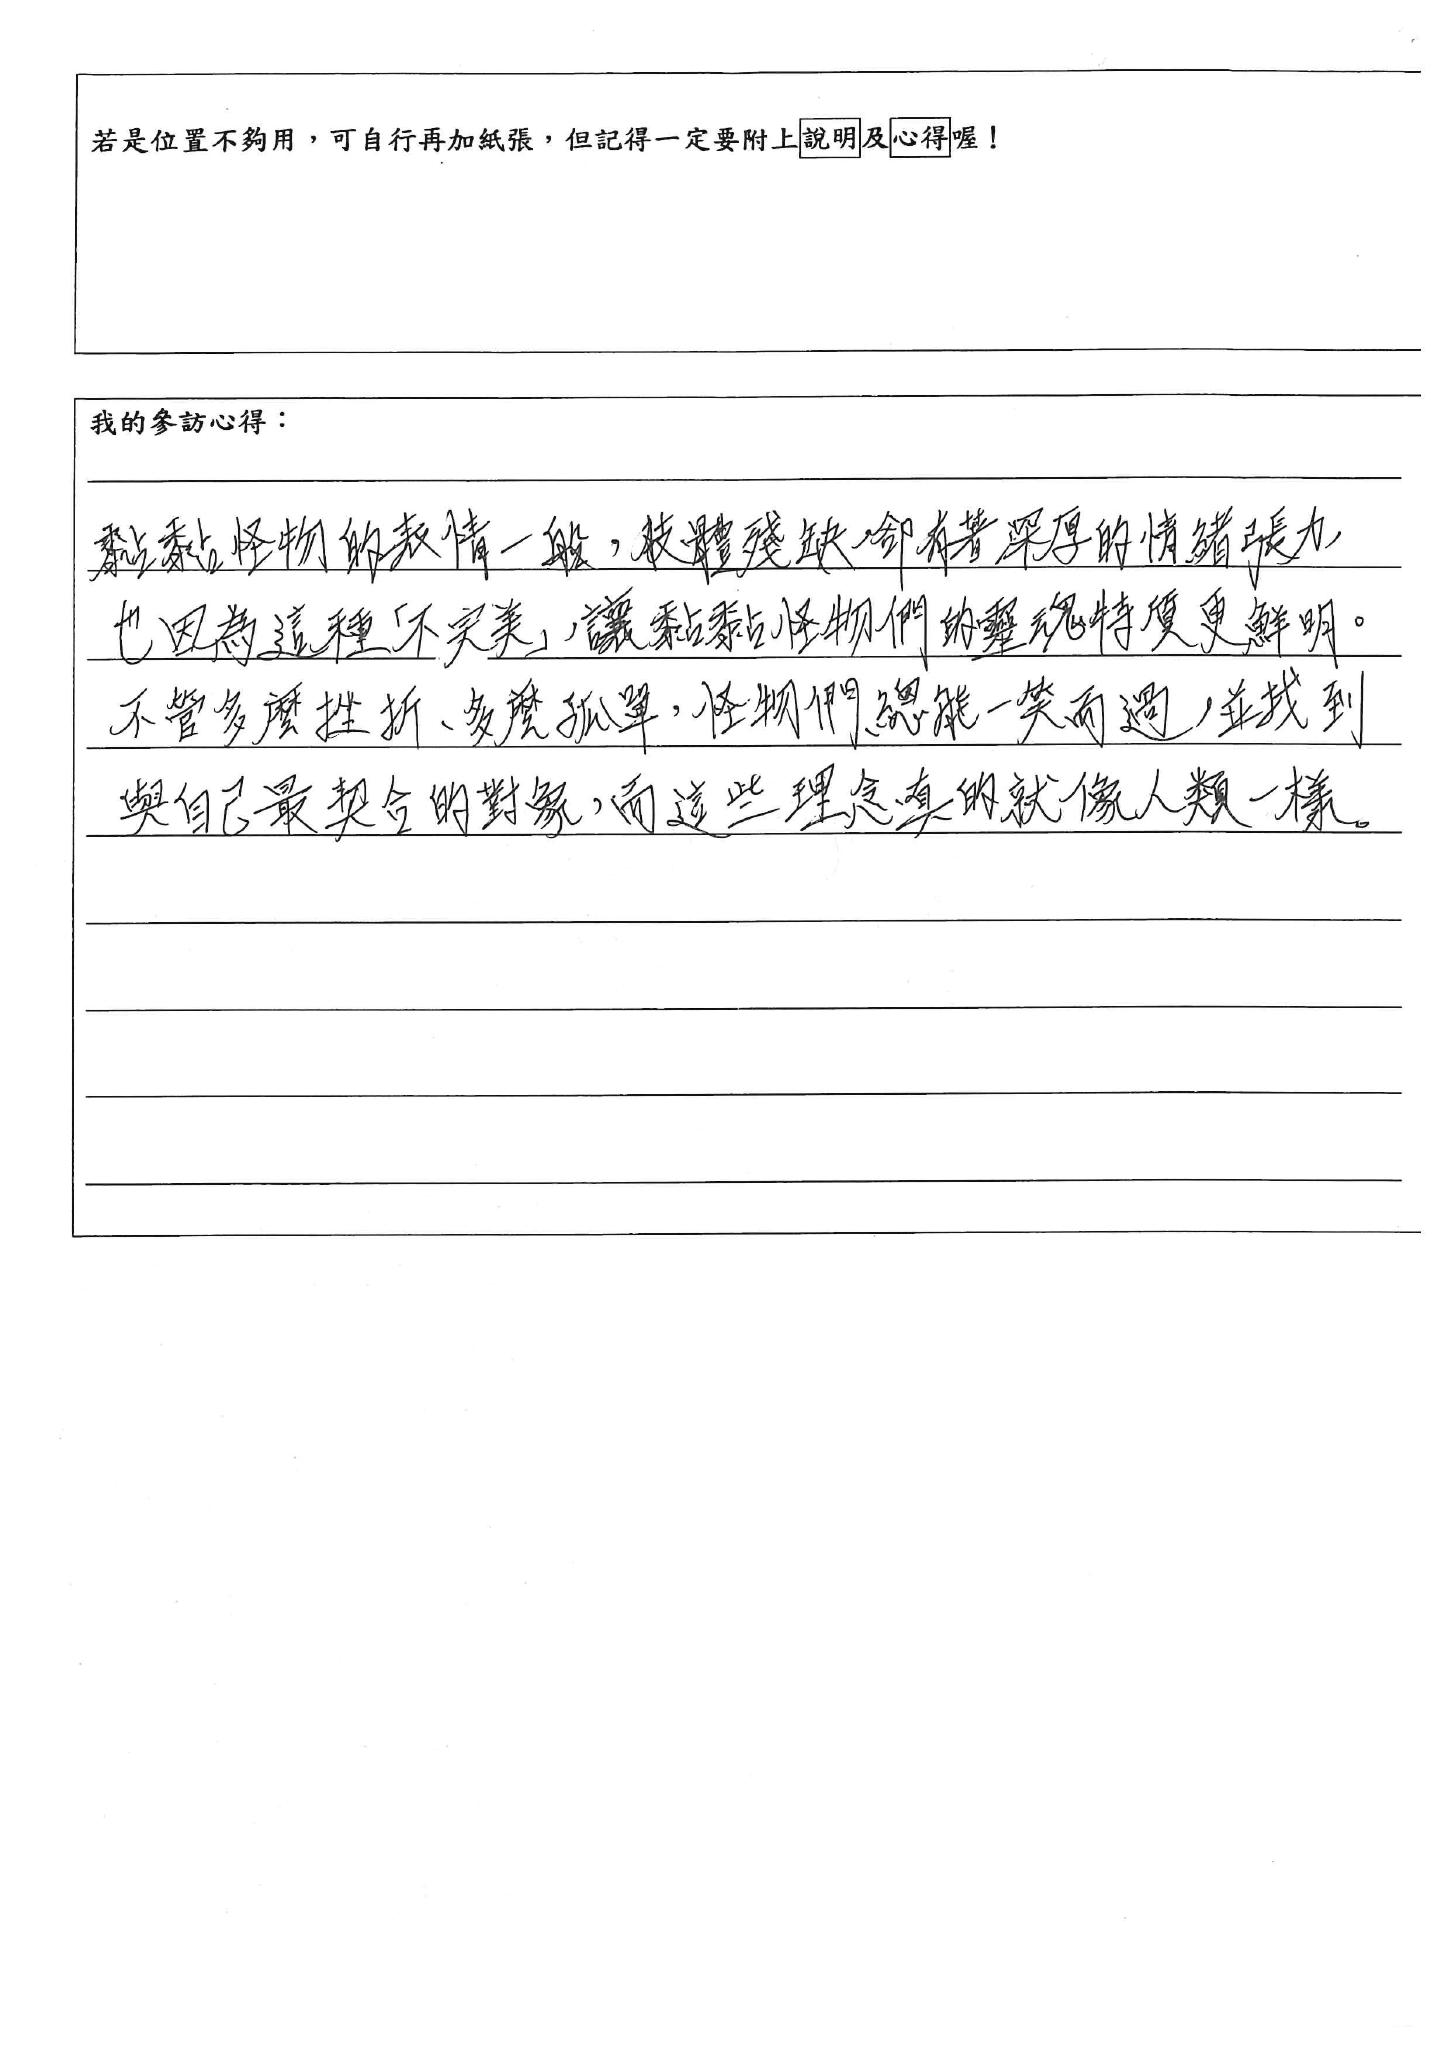 若是位置不夠用，可自行再加紙張，但記得一定要附上說明及心得喔！
我的參訪心得：
黏黏怪物的表情一般，肢體殘缺，卻有著深厚的情緒張力，
也因為這種「不完美」，讓黏黏怪物們的靈魂特質更鮮明。
不管多麼挫折、多麼孤單，怪物們總能一笑而過，並找到
與自己最契合的對象，而這些理念真的就像人類一樣。